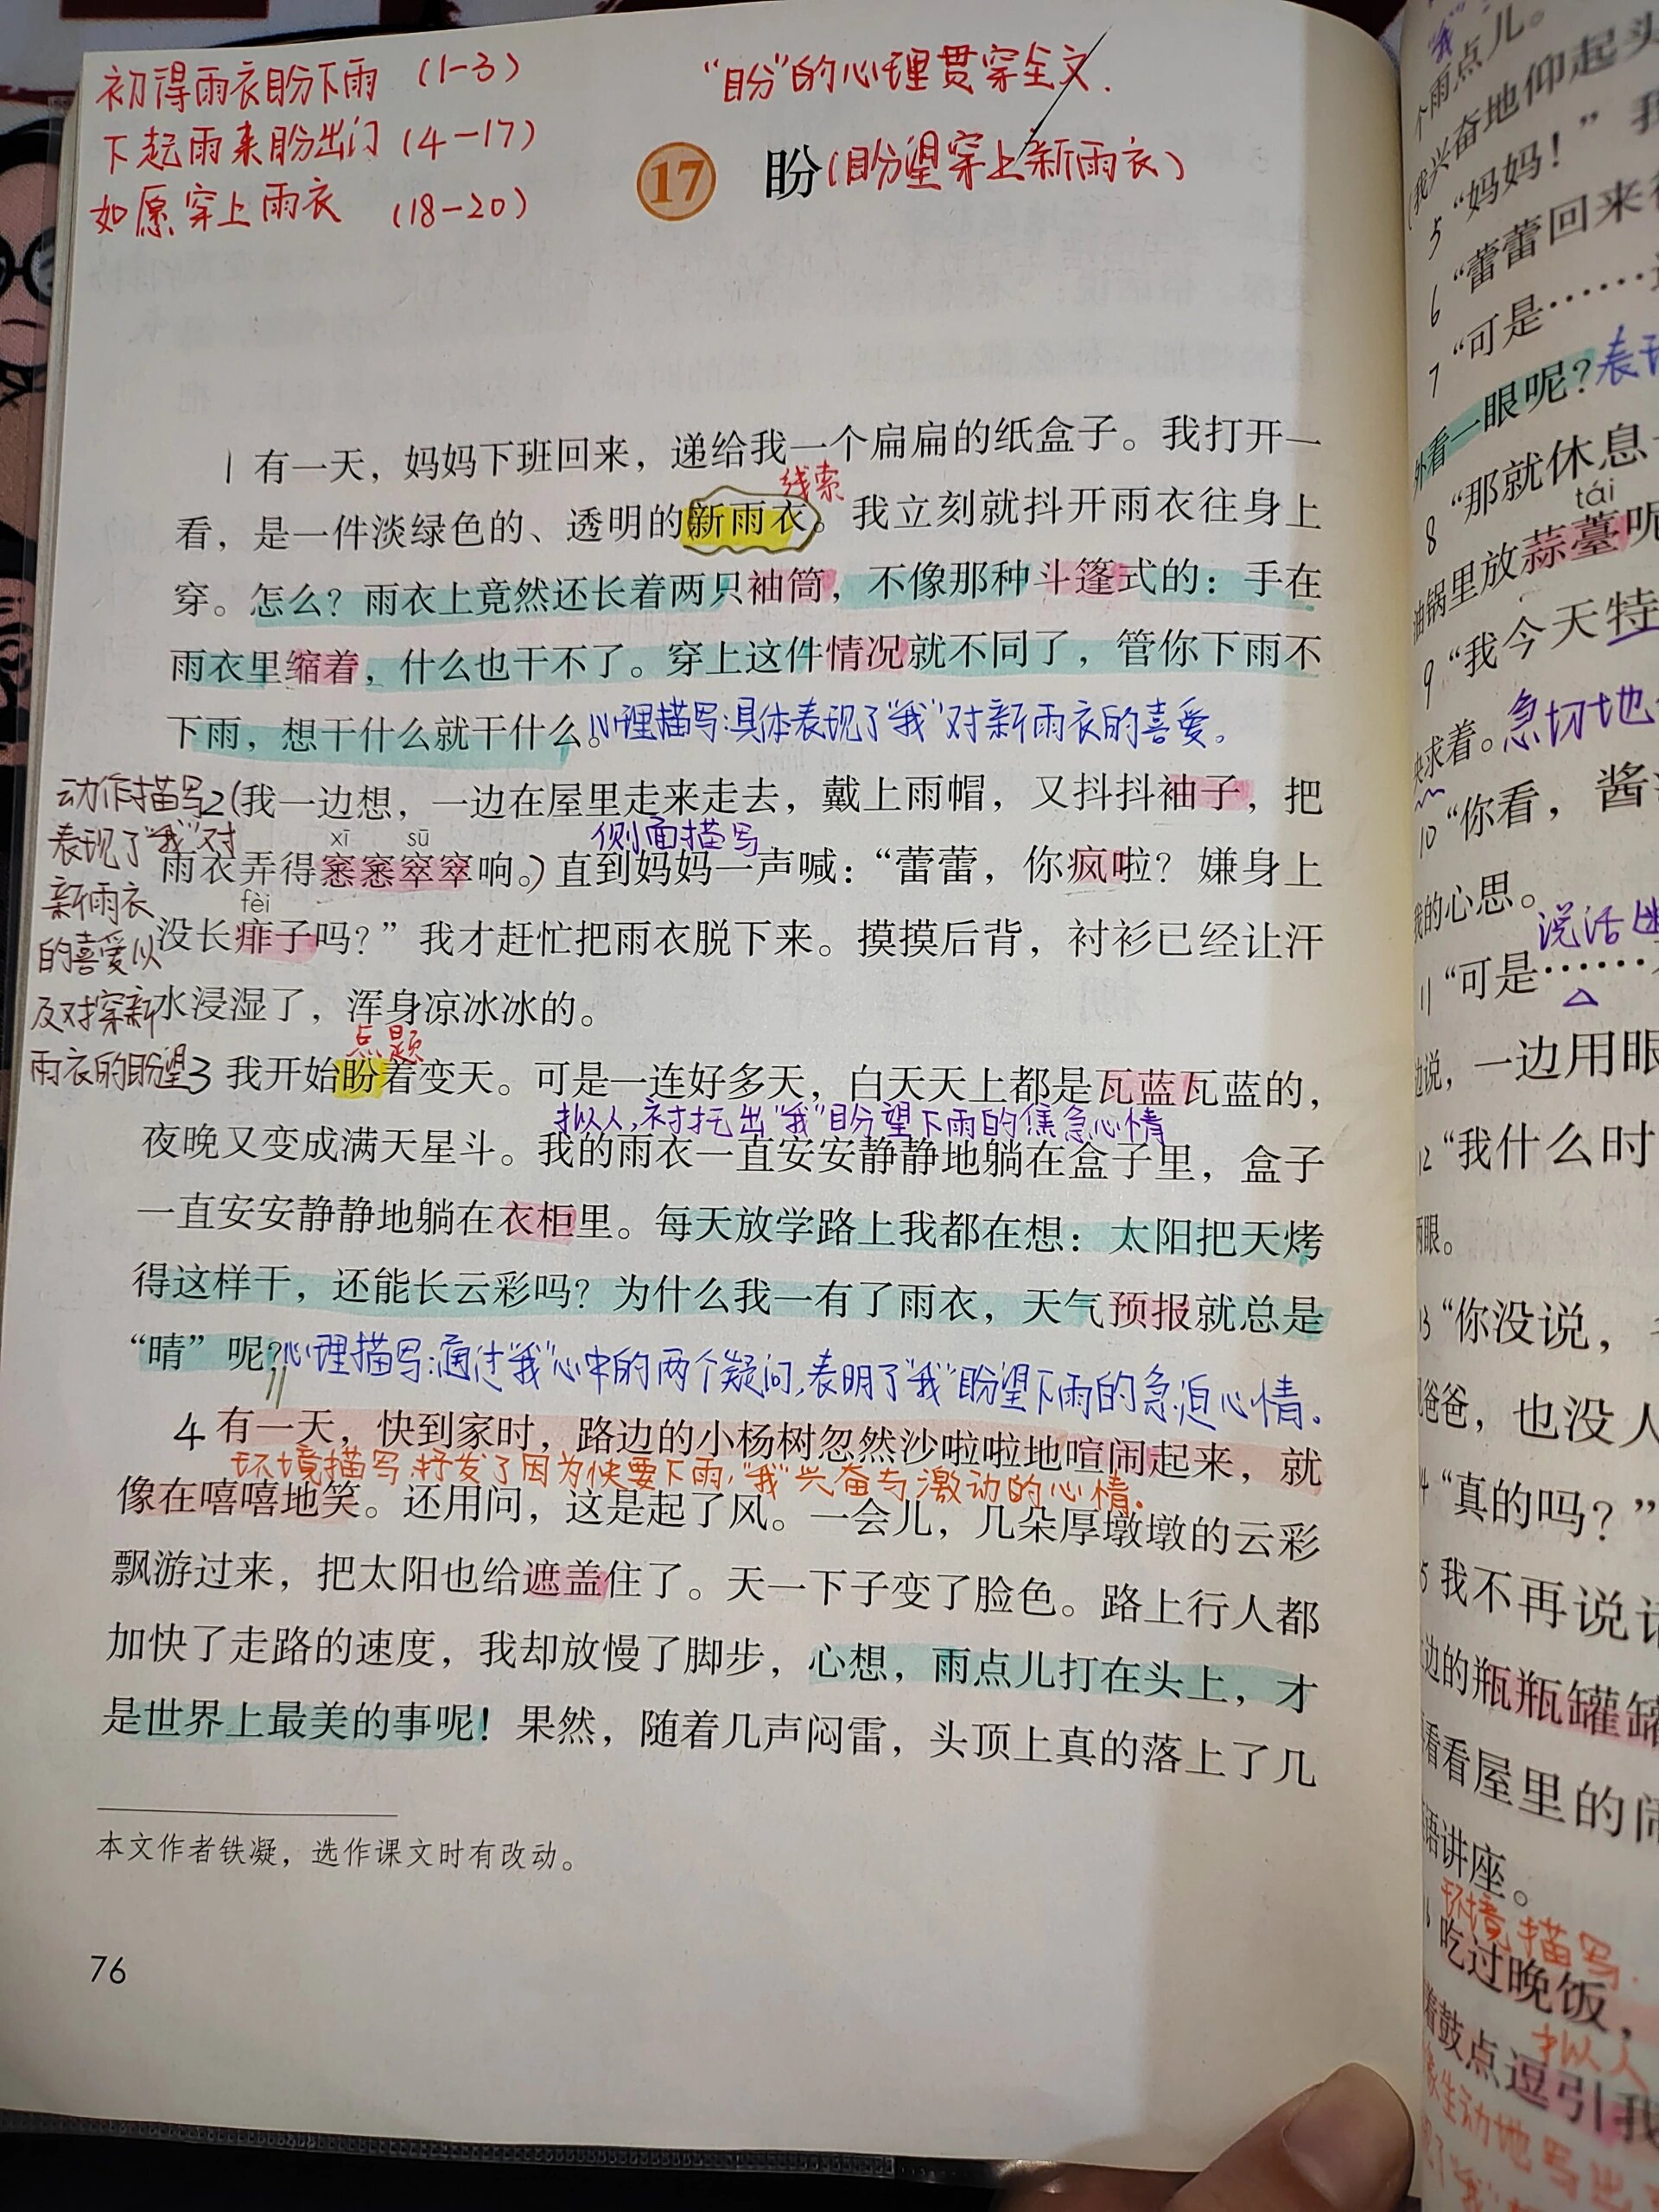 初得雨衣盼下雨 (1-3)
下起雨来盼出门 (4-17)
如愿穿上雨衣 (18-20)
“盼”的心理贯穿全文.
17 盼(盼望穿上新雨衣)
1 有一天，妈妈下班回来，递给我一个扁扁的纸盒子。我打开一
线索
看，是一件淡绿色的、透明的新雨衣。我立刻就抖开雨衣往身上
穿。怎么？雨衣上竟然还长着两只袖筒，不像那种斗篷式的：手在
雨衣里缩着，什么也干不了。穿上这件情况就不同了，管你下雨不
下雨，想干什么就干什么。心理描写:具体表现了“我”对新雨衣的喜爱。
动作描写
表现了“我”对
新雨衣
的喜爱以
及对穿新
雨衣的盼望
2(我一边想，一边在屋里走来走去，戴上雨帽，又抖抖袖子，把
xī sū 侧面描写
雨衣弄得窸窸窣窣响。)直到妈妈一声喊：“蕾蕾，你疯啦？嫌身上
fèi
没长痱子吗？”我才赶忙把雨衣脱下来。摸摸后背，衬衫已经让汗
水浸湿了，浑身凉冰冰的。
点题
3 我开始盼着变天。可是一连好多天，白天天上都是瓦蓝瓦蓝的，
拟人,衬托出“我”盼望下雨的焦急心情
夜晚又变成满天星斗。我的雨衣一直安安静静地躺在盒子里，盒子
一直安安静静地躺在衣柜里。每天放学路上我都在想：太阳把天烤
得这样干，还能长云彩吗？为什么我一有了雨衣，天气预报就总是
“晴”呢？心理描写:通过“我”心中的两个疑问,表明了“我”盼望下雨的急迫心情。
4 有一天，快到家时，路边的小杨树忽然沙啦啦地喧闹起来，就
环境描写,抒发了因为快要下雨,“我”兴奋与激动的心情.
像在嘻嘻地笑。还用问，这是起了风。一会儿，几朵厚墩墩的云彩
飘游过来，把太阳也给遮盖住了。天一下子变了脸色。路上行人都
加快了走路的速度，我却放慢了脚步，心想，雨点儿打在头上，才
是世界上最美的事呢！果然，随着几声闷雷，头顶上真的落上了几
本文作者铁凝，选作课文时有改动。
76
个雨点儿。
(我兴奋地仰起头
5 “妈妈！”我
6 “蕾蕾回来
7 “可是……
外看一眼呢？表现
8 “那就休息
tái
油锅里放蒜薹呢
9 “我今天特
求着。急切地
10 “你看，酱
我的心思。
说话
11 “可是……
边说，一边用眼
12 “我什么时
两眼。
13 “你没说，
爸爸，也没人
14 “真的吗？”
15 我不再说话
边的瓶瓶罐罐
看看屋里的
语讲座。
环境描写.
16 吃过晚饭，
拟人
着鼓点逗引我
生动地写出